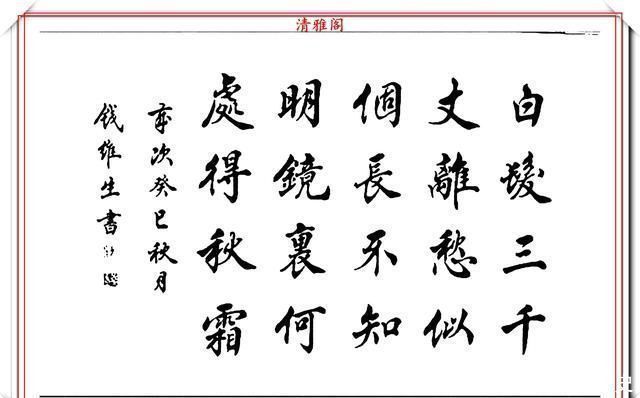 清雅阁
白髮三千
丈離愁似
個長不知
明鏡裏何
處得秋霜
歲次癸巳秋月
錢維生書
史